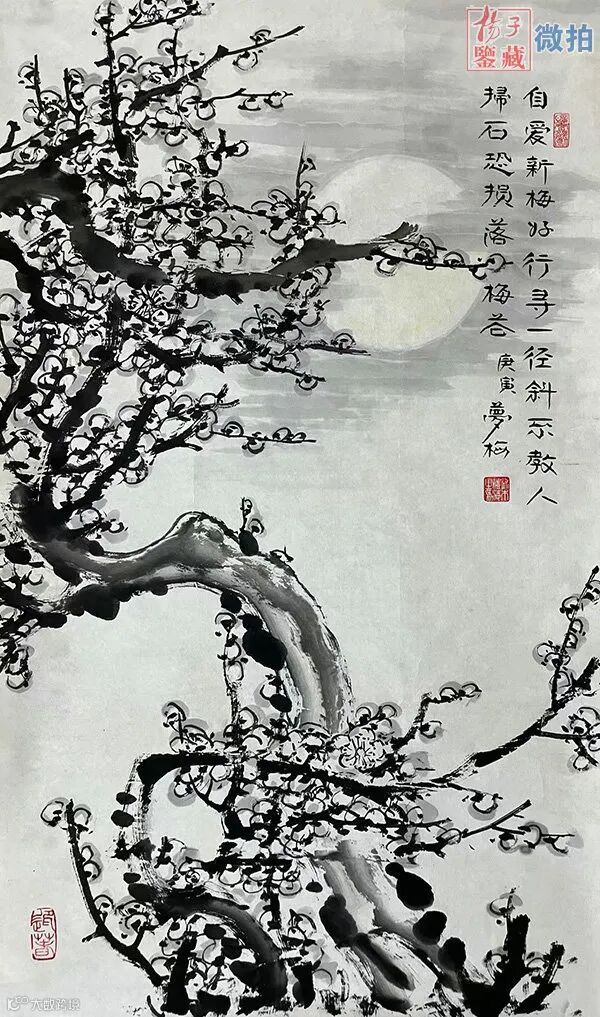 楊子
鑒藏
微拍
自爱新梅好行寻一径斜不教人
掃石恐损落梅花
庚寅 夢梅
大数跨境